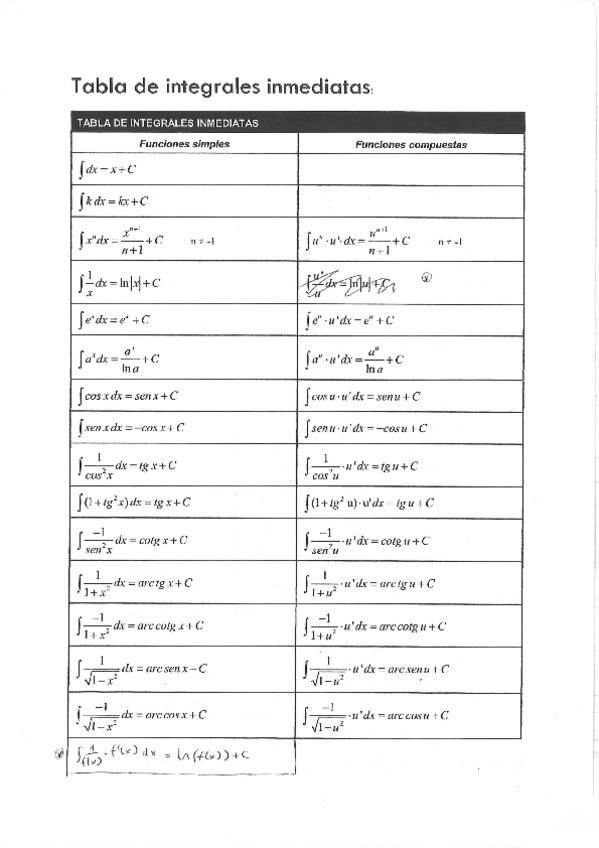 Tabla de integrales inmediatas:
TABLA DE INTEGRALES INMEDIATAS
Funciones simples Funciones compuestas
∫dx = x + C
∫k dx = kx + C
∫xⁿdx = xⁿ⁺¹/(n+1) + C n ≠ -1 ∫uⁿ·u'·dx = uⁿ⁺¹/(n+1) + C n ≠ -1
∫1/x dx = ln|x| + C ∫u'/u dx = ln|u| + C
∫eˣdx = eˣ + C ∫eᵘ·u'dx = eᵘ + C
∫aˣdx = aˣ/ln a + C ∫aᵘ·u'dx = aᵘ/ln a + C
∫cos x dx = sen x + C ∫cos u·u'dx = sen u + C
∫sen x dx = −cos x + C ∫sen u·u'dx = −cos u + C
∫1/cos²x dx = tg x + C ∫1/cos²u ·u'dx = tg u + C
∫(1+tg²x)dx = tg x + C ∫(1+tg² u)·u'dx = tg u + C
∫−1/sen²x dx = cotg x + C ∫−1/sen²u ·u'dx = cotg u + C
∫1/(1+x²) dx = arc tg x + C ∫1/(1+u²) ·u'dx = arc tg u + C
∫−1/(1+x²) dx = arc cotg x + C ∫−1/(1+u²) ·u'dx = arc cotg u + C
∫1/√(1−x²) dx = arc sen x − C ∫1/√(1−u²) ·u'dx = arc sen u + C
∫−1/√(1−x²) dx = arc cos x + C ∫−1/√(1−u²) ·u'dx = arc cos u + C
∫1/f(x) · f'(x) dx = ln(f(x)) + C